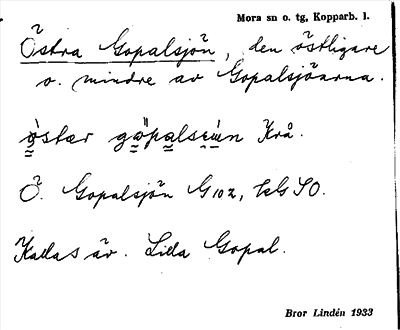 Mora sn o. tg, Kopparb. l.
Östra Gopalsjön, den östligare
o. mindre av Gopalsjöarna.
Krå.
Ö. Gopalsjön G102, SO.
Kallas äv. Lilla Gopal.
Bror Lindén 1933